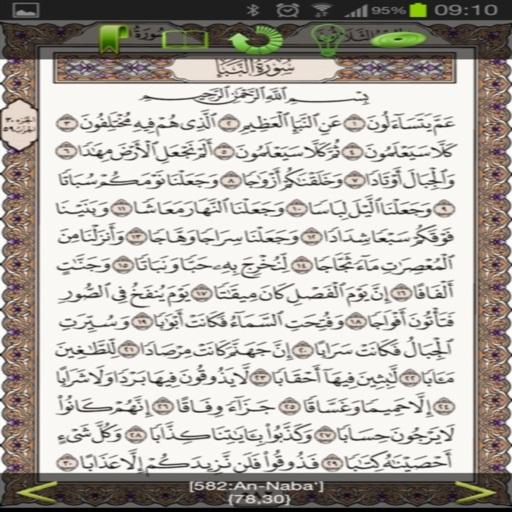 95% 09:10
سُورَةُ النَّبَإِ
بِسْمِ اللَّهِ الرَّحْمَٰنِ الرَّحِيمِ
عَمَّ يَتَسَاءَلُونَ ١ عَنِ النَّبَإِ الْعَظِيمِ ٢ الَّذِي هُمْ فِيهِ مُخْتَلِفُونَ ٣
كَلَّا سَيَعْلَمُونَ ٤ ثُمَّ كَلَّا سَيَعْلَمُونَ ٥ أَلَمْ نَجْعَلِ الْأَرْضَ مِهَادًا ٦
وَالْجِبَالَ أَوْتَادًا ٧ وَخَلَقْنَاكُمْ أَزْوَاجًا ٨ وَجَعَلْنَا نَوْمَكُمْ سُبَاتًا
٩ وَجَعَلْنَا اللَّيْلَ لِبَاسًا ١٠ وَجَعَلْنَا النَّهَارَ مَعَاشًا ١١ وَبَنَيْنَا
فَوْقَكُمْ سَبْعًا شِدَادًا ١٢ وَجَعَلْنَا سِرَاجًا وَهَّاجًا ١٣ وَأَنزَلْنَا مِنَ
الْمُعْصِرَاتِ مَاءً ثَجَّاجًا ١٤ لِّنُخْرِجَ بِهِ حَبًّا وَنَبَاتًا ١٥ وَجَنَّاتٍ
أَلْفَافًا ١٦ إِنَّ يَوْمَ الْفَصْلِ كَانَ مِيقَاتًا ١٧ يَوْمَ يُنفَخُ فِي الصُّورِ
فَتَأْتُونَ أَفْوَاجًا ١٨ وَفُتِحَتِ السَّمَاءُ فَكَانَتْ أَبْوَابًا ١٩ وَسُيِّرَتِ
الْجِبَالُ فَكَانَتْ سَرَابًا ٢٠ إِنَّ جَهَنَّمَ كَانَتْ مِرْصَادًا ٢١ لِّلطَّاغِينَ
مَآبًا ٢٢ لَّابِثِينَ فِيهَا أَحْقَابًا ٢٣ لَّا يَذُوقُونَ فِيهَا بَرْدًا وَلَا شَرَابًا
٢٤ إِلَّا حَمِيمًا وَغَسَّاقًا ٢٥ جَزَاءً وِفَاقًا ٢٦ إِنَّهُمْ كَانُوا
لَا يَرْجُونَ حِسَابًا ٢٧ وَكَذَّبُوا بِآيَاتِنَا كِذَّابًا ٢٨ وَكُلَّ شَيْءٍ
أَحْصَيْنَاهُ كِتَابًا ٢٩ فَذُوقُوا فَلَن نَّزِيدَكُمْ إِلَّا عَذَابًا ٣٠
[582:An-Naba']
{78,30}